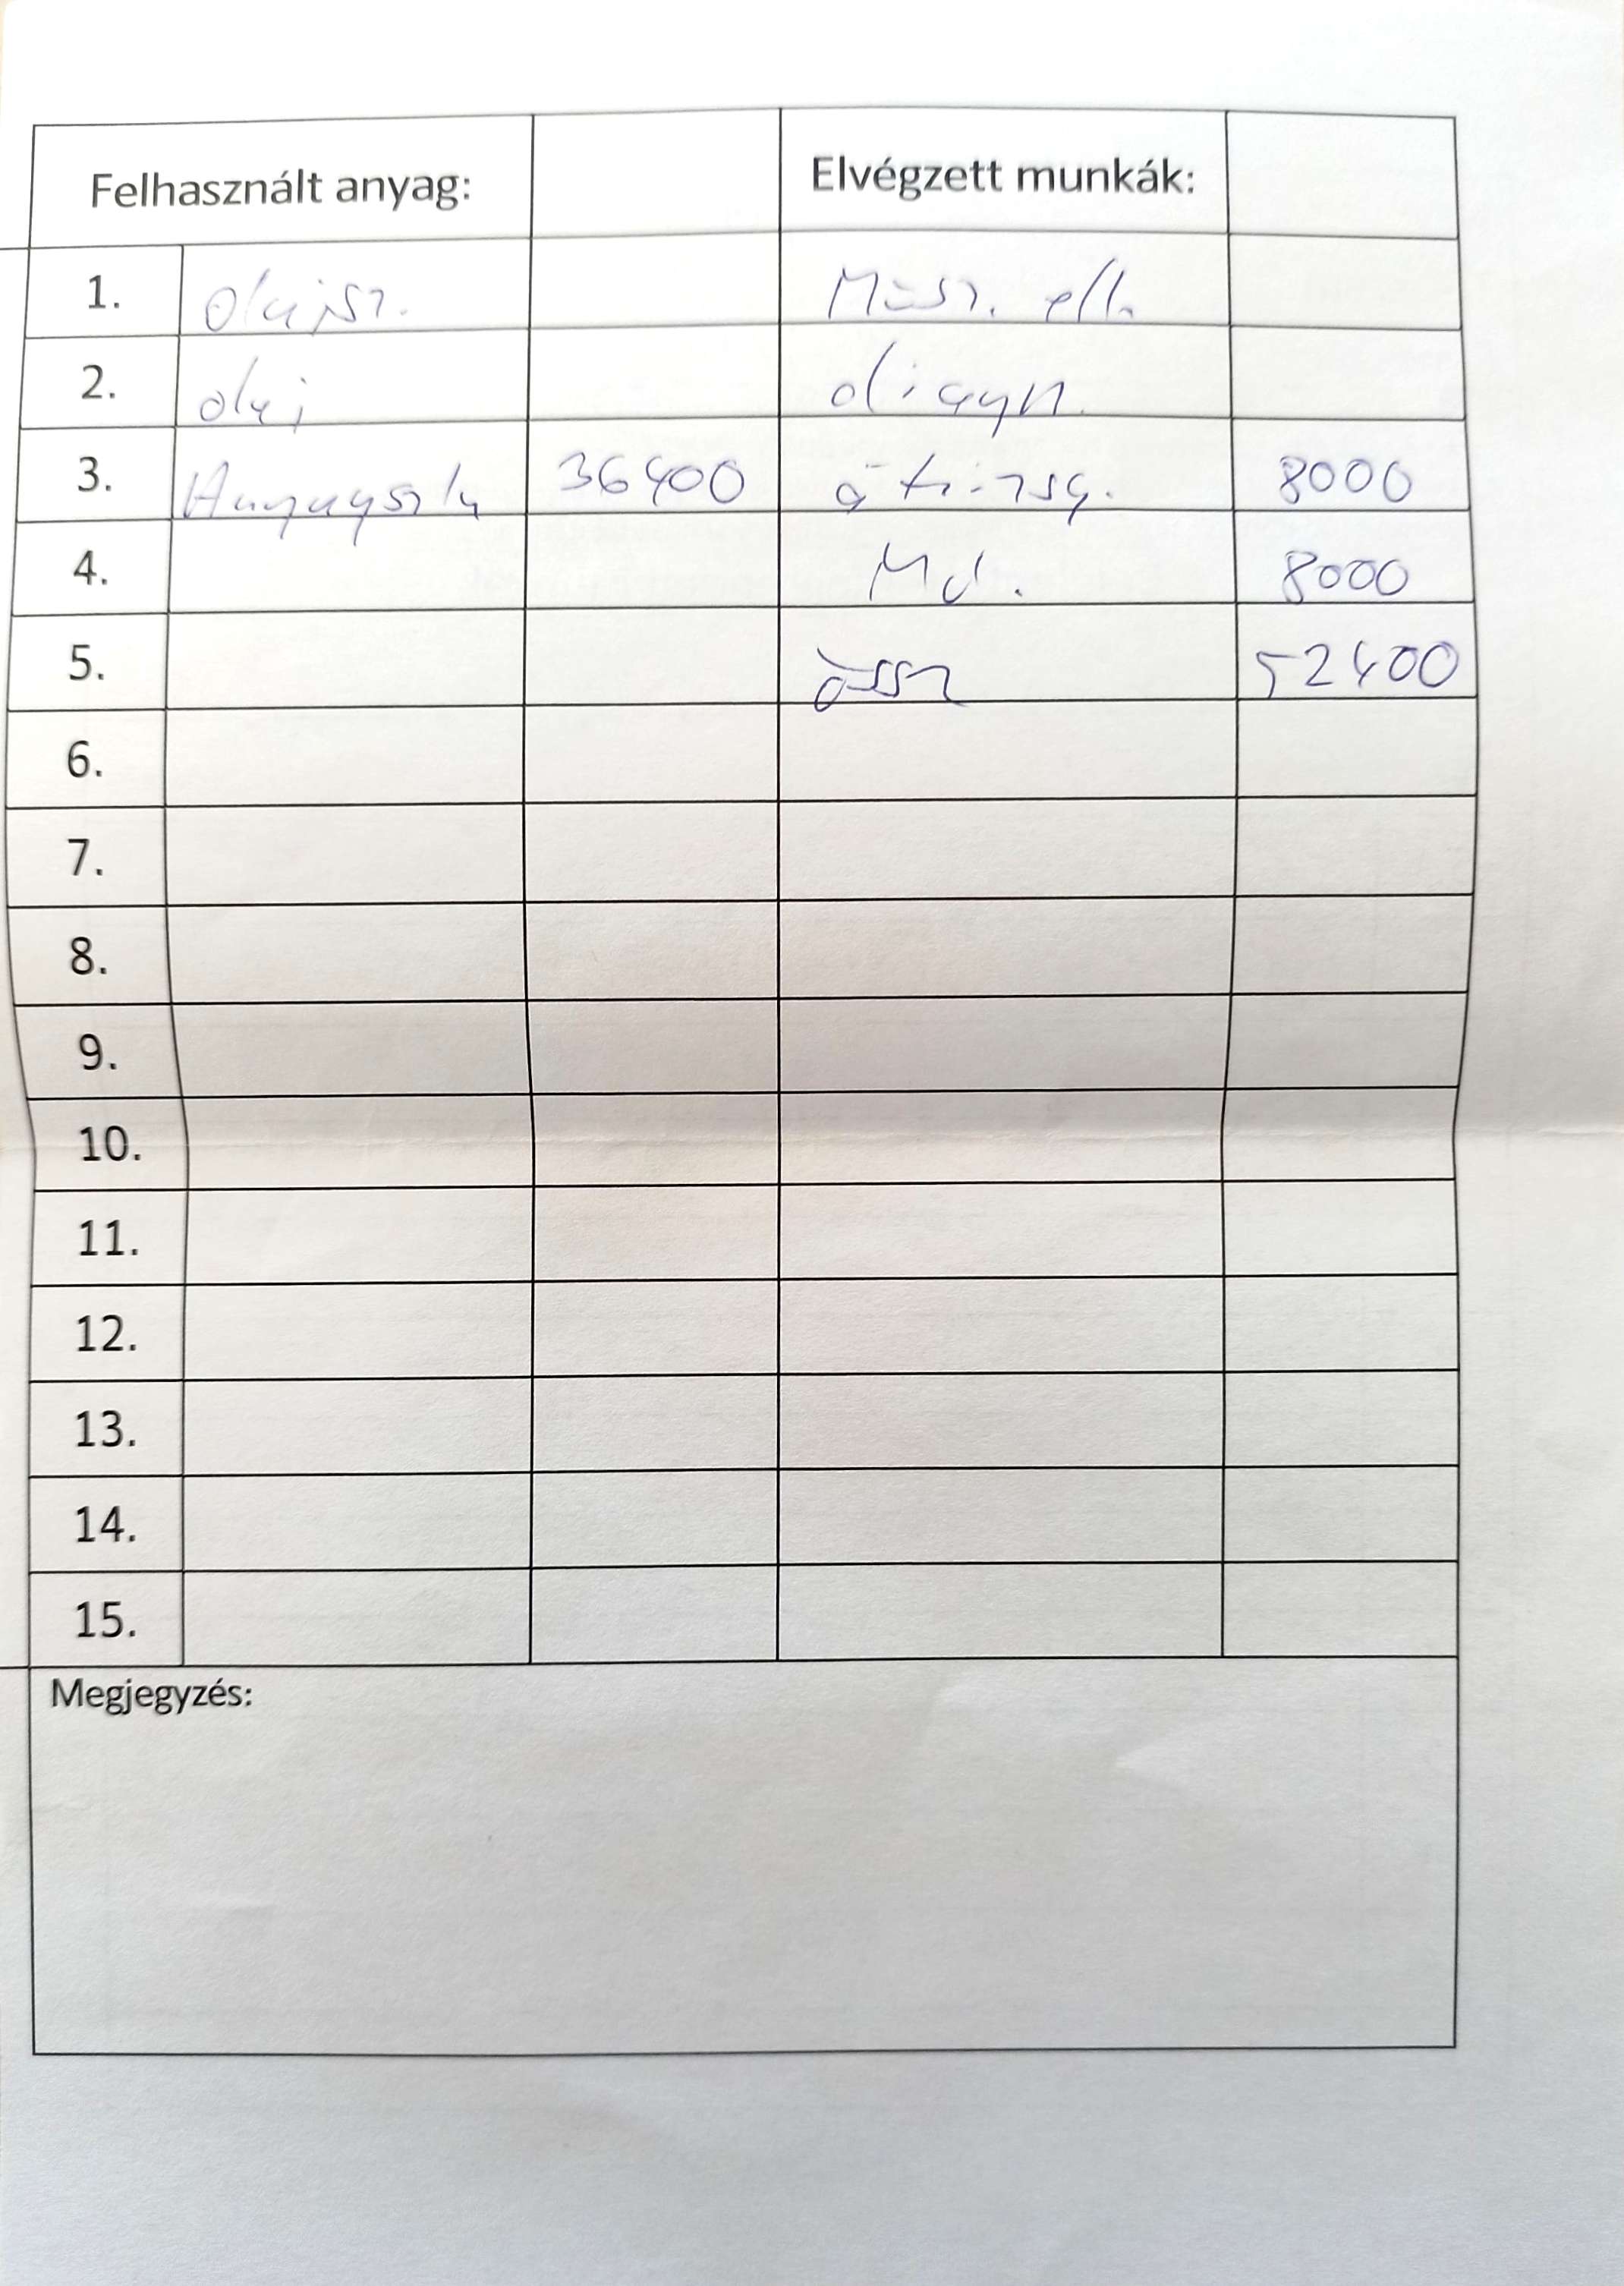 Felhasznált anyag: Elvégzett munkák:
1. olajsz. Műsz. ell.
2. olaj diagn.
3. Anyagszla 36400 átvizsg. 8000
4. Md. 8000
5. össz 52400
6.
7.
8.
9.
10.
11.
12.
13.
14.
15.
Megjegyzés: